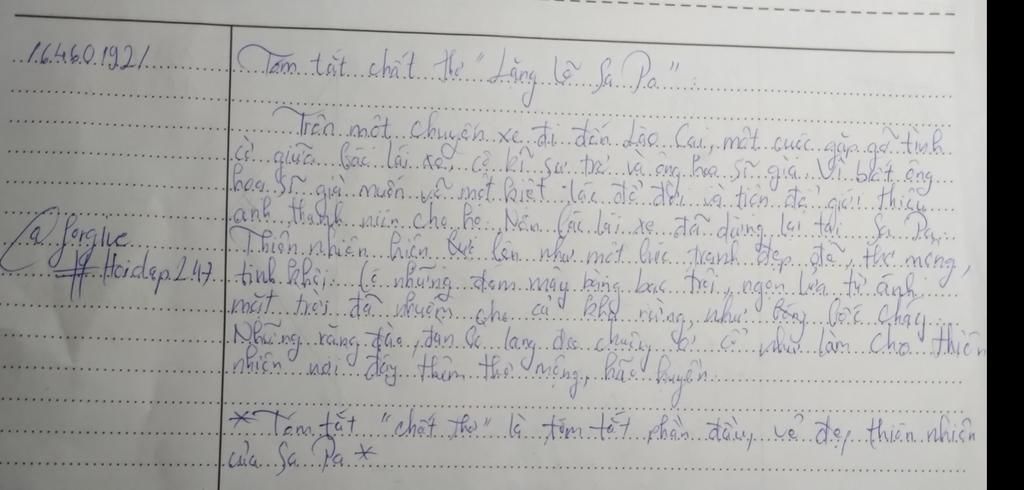 16460.1921
Tóm tắt chất thơ "Lặng lẽ Sa Pa".
Trên một chuyến xe đi đến Lào Cai, một cuộc gặp gỡ tình
cờ giữa bác lái xe, cô kĩ sư trẻ và ông họa sĩ già. Vì biết ông
họa sĩ già muốn vẽ một kiệt tác để đời và tiện để giới thiệu
anh thanh niên cho họ. Nên bác lái xe đã dừng lại tại Sa Pa.
Thiên nhiên hiện lên như một bức tranh đẹp đẽ, thơ mộng,
tinh khôi. Có những đám mây bồng bạc trôi, ngọn lửa từ ánh
mặt trời đã nhuộm cho cả khu rừng, như bừng bốc cháy.
Những rặng đào, đàn bò lang đeo chuông ở cổ như làm cho thiên
nhiên nơi đây thêm thơ mộng, hão huyền.
@ forgive
# Hoidap247
* Tóm tắt "chất thơ" là tóm tắt phần đầu, vẻ đẹp thiên nhiên
của Sa Pa *